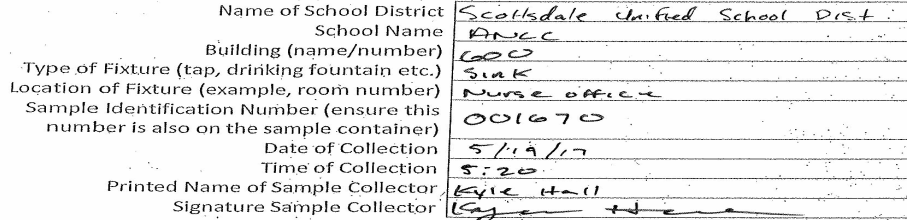 Name of School District Scottsdale Unified School Dist.
School Name ANLC
Building (name/number) 600
Type of Fixture (tap, drinking fountain etc.) Sink
Location of Fixture (example, room number) Nurse office
Sample Identification Number (ensure this
number is also on the sample container) 001670
Date of Collection 5/19/17
Time of Collection 5:20
Printed Name of Sample Collector Kyle Hall
Signature Sample Collector